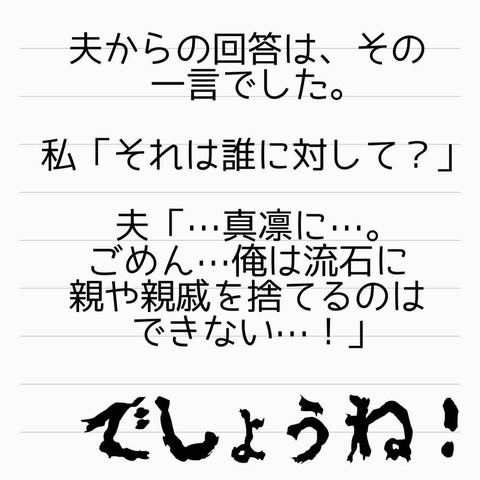 夫からの回答は、その
一言でした。
私「それは誰に対して？」
夫「…真凛に…。
ごめん…俺は流石に
親や親戚を捨てるのは
できない…！」
でしょうね！